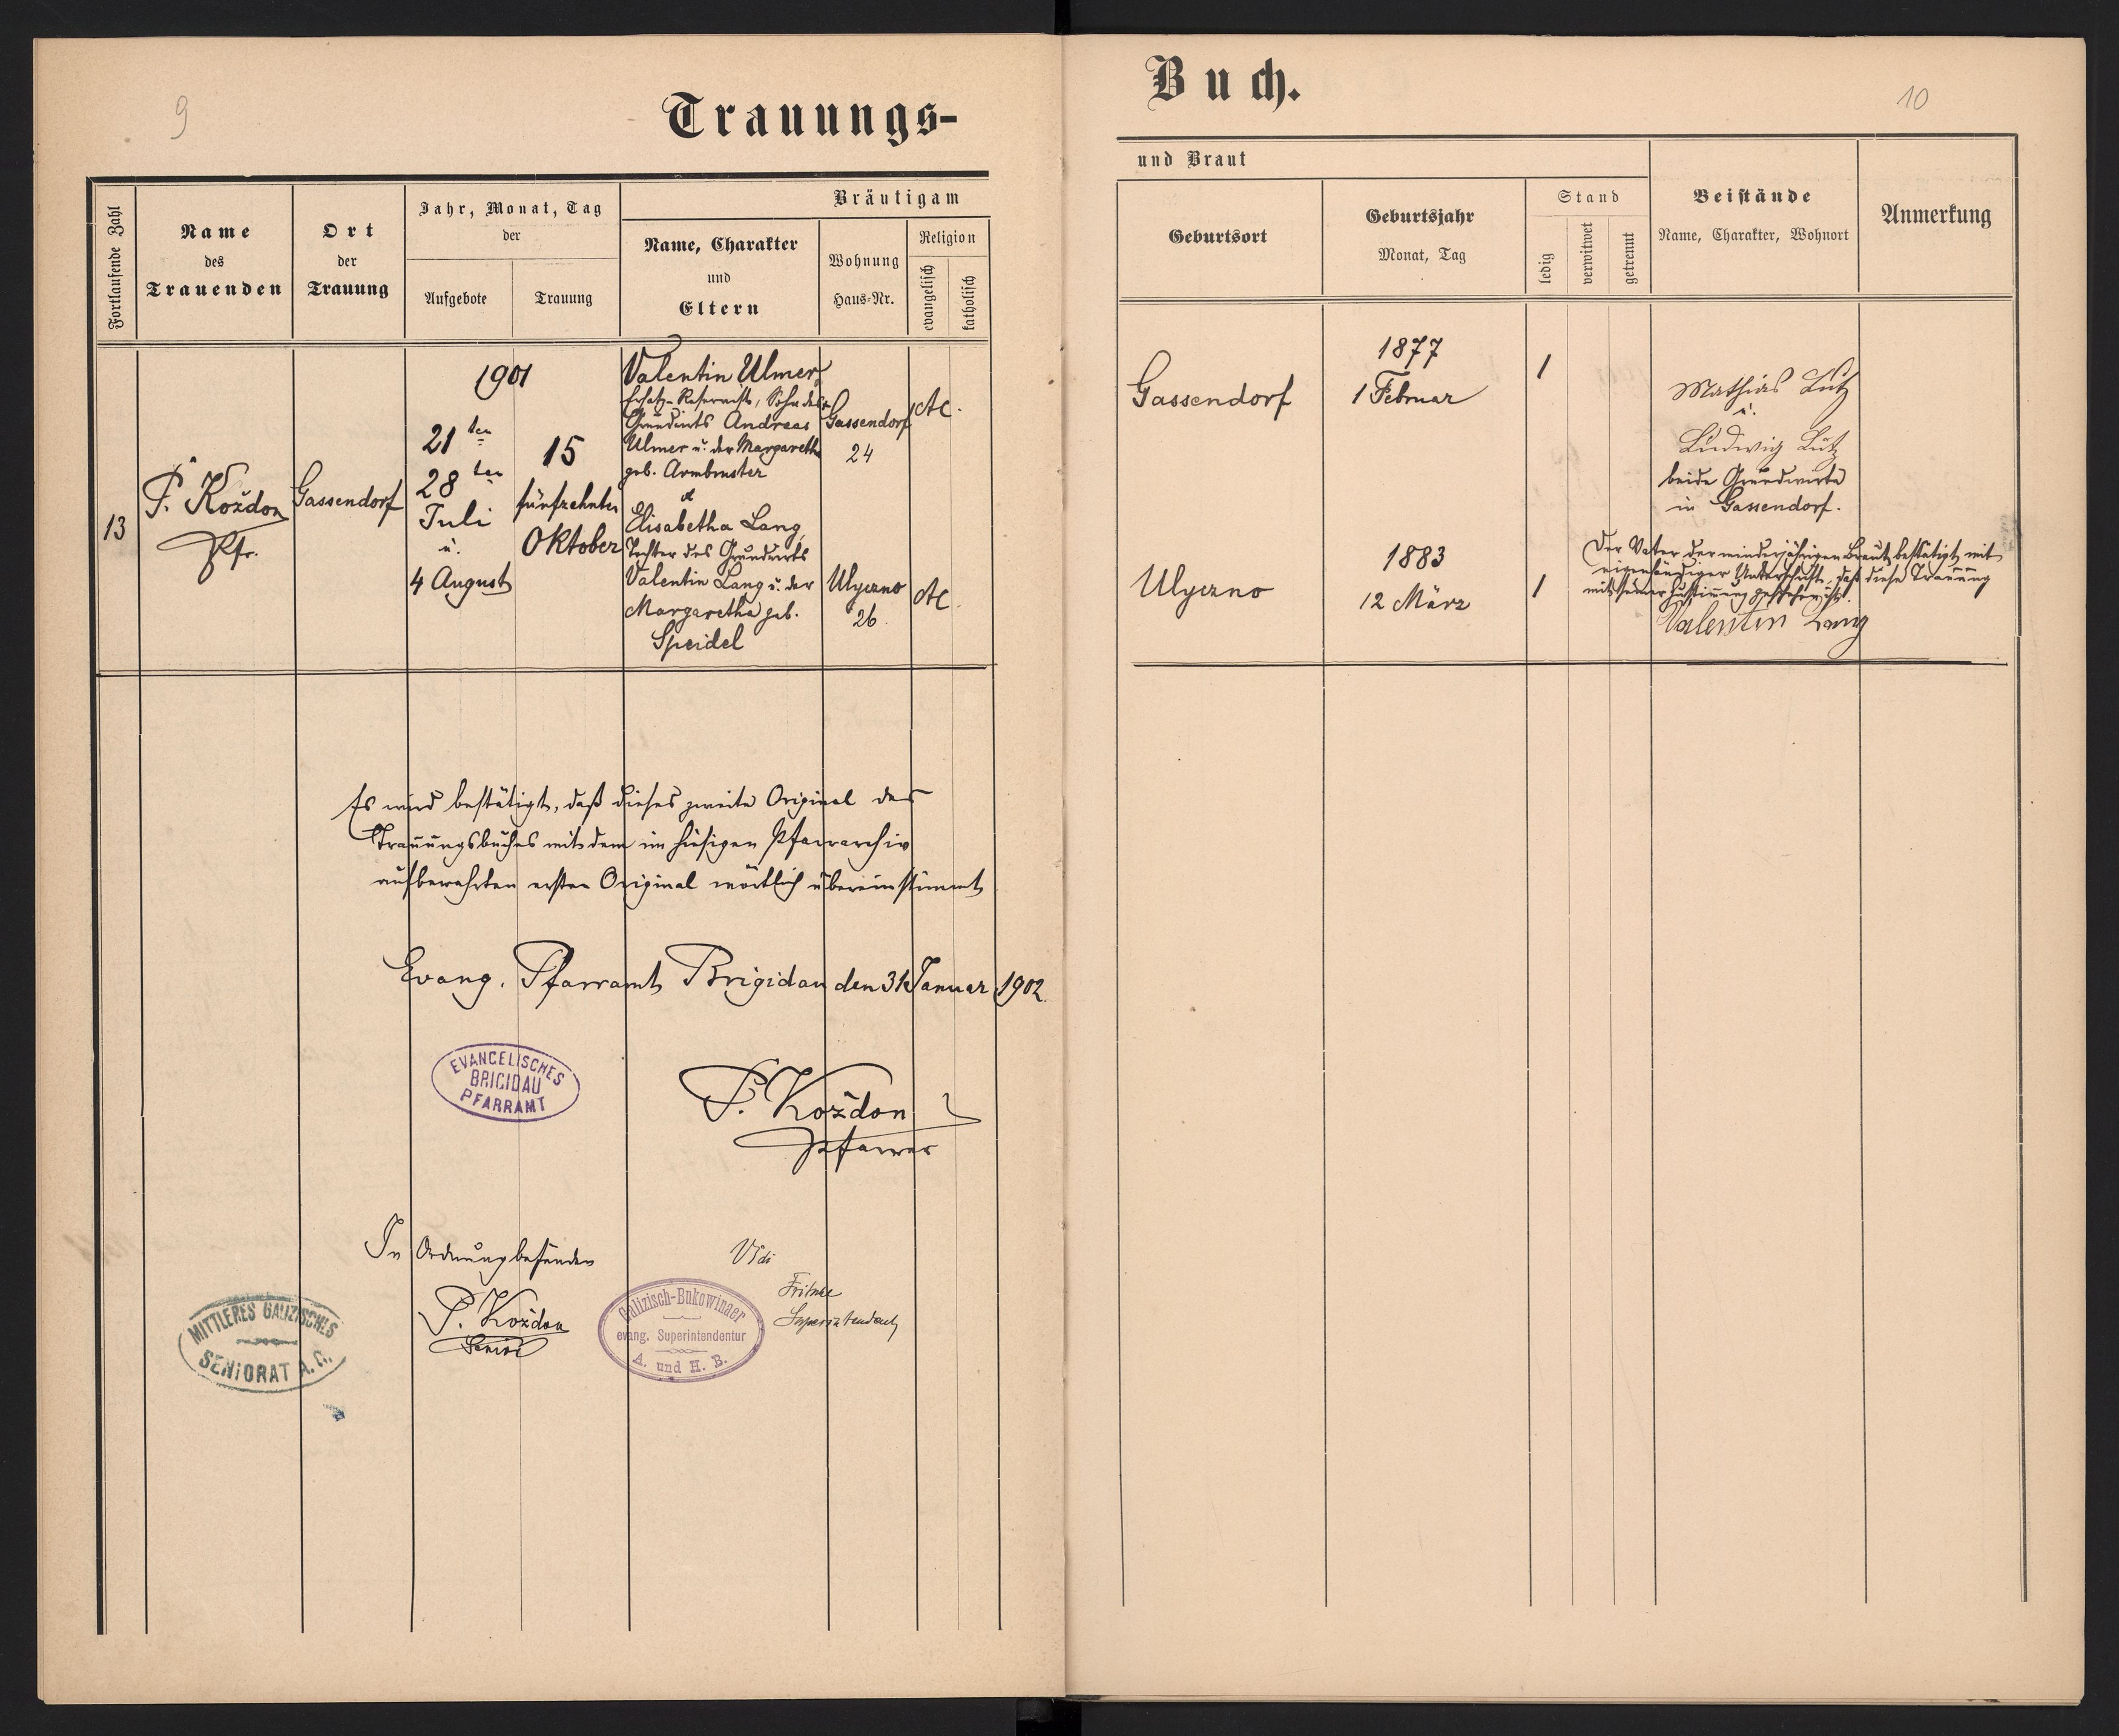 9
Trauungs-
Fortlaufende Zahl
Name
des
Trauenden
Ort
der
Trauung
Jahr, Monat, Tag
der
Aufgebote
Trauung
Bräutigam
Name, Charakter
und
Eltern
Wohnung
Haus-Nr.
Religion
evangelisch
katholisch
13
P. Koždon
Pfr.
Gassendorf
1901
21 ten
28 ten
Juli
u.
4 August
15
fünfzehnter
Oktober
Valentin Ulmer,
Ersatz-Reservist, Sohn des
Grundwirts Andreas
Ulmer u. der Margaretha
geb. Armbruster
et
Elisabetha Lang,
Tochter des Grundwirts
Valentin Lang u. der
Margaretha geb.
Speidel
Gassendorf
24
Ulyczno
26
AC.
AC.
Es wird bestätigt, daß dieses zweite Original des
Trauungsbuches mit dem im hiesigen Pfarrarchiv
aufbewahrten ersten Original wörtlich übereinstimmt
Evang. Pfarramt Brigidau den 31 Januar 1902.
EVANGELISCHES
BRIGIDAU
PFARRAMT
P. Koždon
Pfarrer
In Ordnung befunden
P. Koždon
Senior
MITTLERES GALIZISCHES
SENIORAT A. C.
Vidi
Fritsche
Superintendent
Galizisch-Bukowinaer
evang. Superintendentur
A. und H. B.
Buch.
10
und Braut
Geburtsort
Geburtsjahr
Monat, Tag
Stand
ledig
verwitwet
getrennt
Beistände
Name, Charakter, Wohnort
Anmerkung
Gassendorf
1877
1 Februar
1
Mathias Lutz
u.
Ludwig Lutz
beide Grundwirte
in Gassendorf.
Ulyczno
1883
12 März
1
Der Vater der minderjährigen Braut bestätigt mit
eigenhändiger Unterschrift, daß diese Trauung
mit seiner Zustimmung geschehen ist.
Valentin Lang